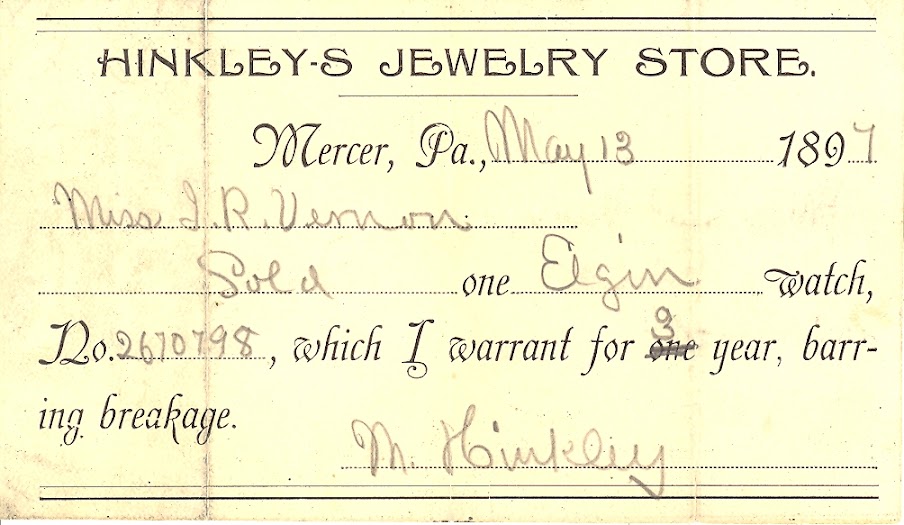 HINKLEY-S JEWELRY STORE.
Mercer, Pa., May 13 1897
Miss I. R. Vernon
Sold one Elgin watch,
No. 2670798, which I warrant for 3 one year, barr-
ing breakage.
M. Hinkley